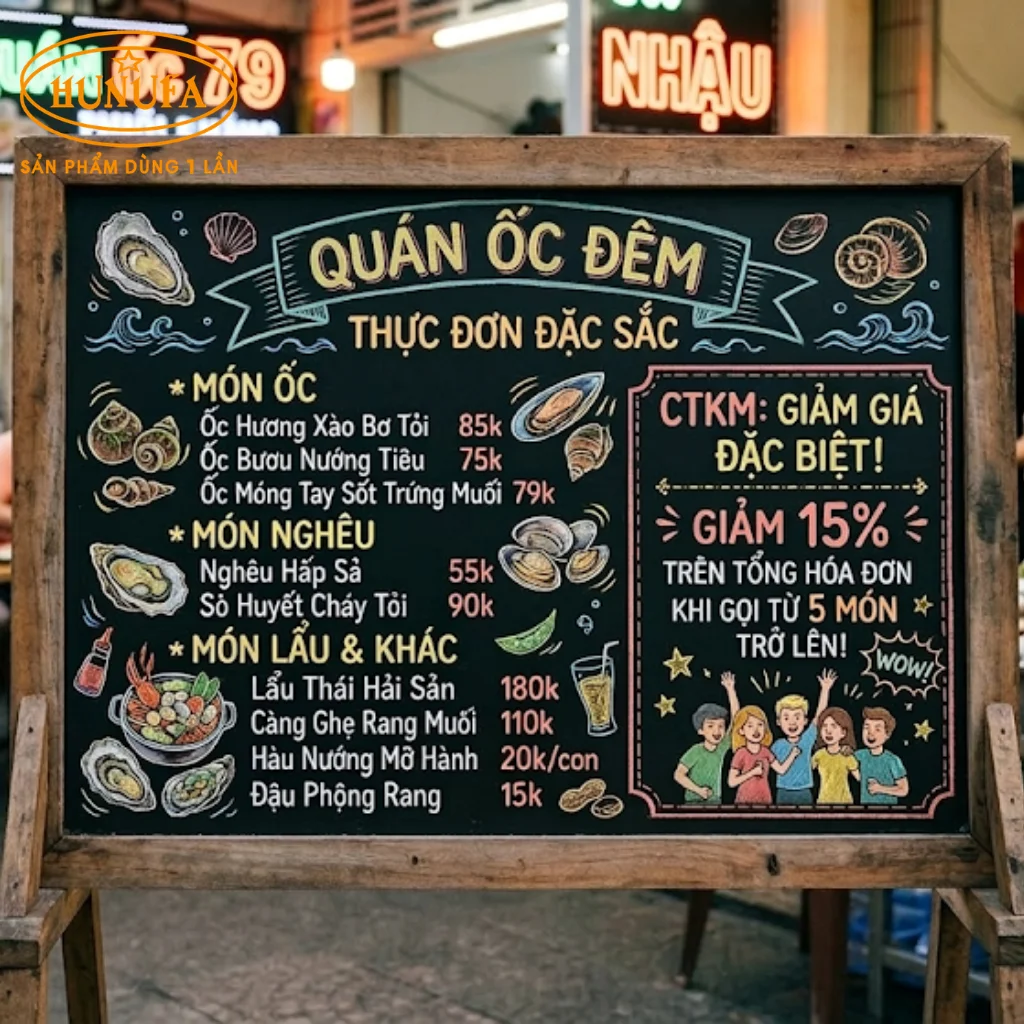 ỐC 79
NHẬU
HUNUFA
SẢN PHẨM DÙNG 1 LẦN
QUÁN ỐC ĐÊM
THỰC ĐƠN ĐẶC SẮC
* MÓN ỐC
Ốc Hương Xào Bơ Tỏi 85k
Ốc Bươu Nướng Tiêu 75k
Ốc Móng Tay Sốt Trứng Muối 79k
* MÓN NGHÊU
Nghêu Hấp Sả 55k
Sò Huyết Cháy Tỏi 90k
* MÓN LẨU & KHÁC
Lẩu Thái Hải Sản 180k
Càng Ghẹ Rang Muối 110k
Hàu Nướng Mỡ Hành 20k/con
Đậu Phộng Rang 15k
CTKM: GIẢM GIÁ
ĐẶC BIỆT!
GIẢM 15%
TRÊN TỔNG HÓA ĐƠN
KHI GỌI TỪ 5 MÓN
TRỞ LÊN!
WOW!